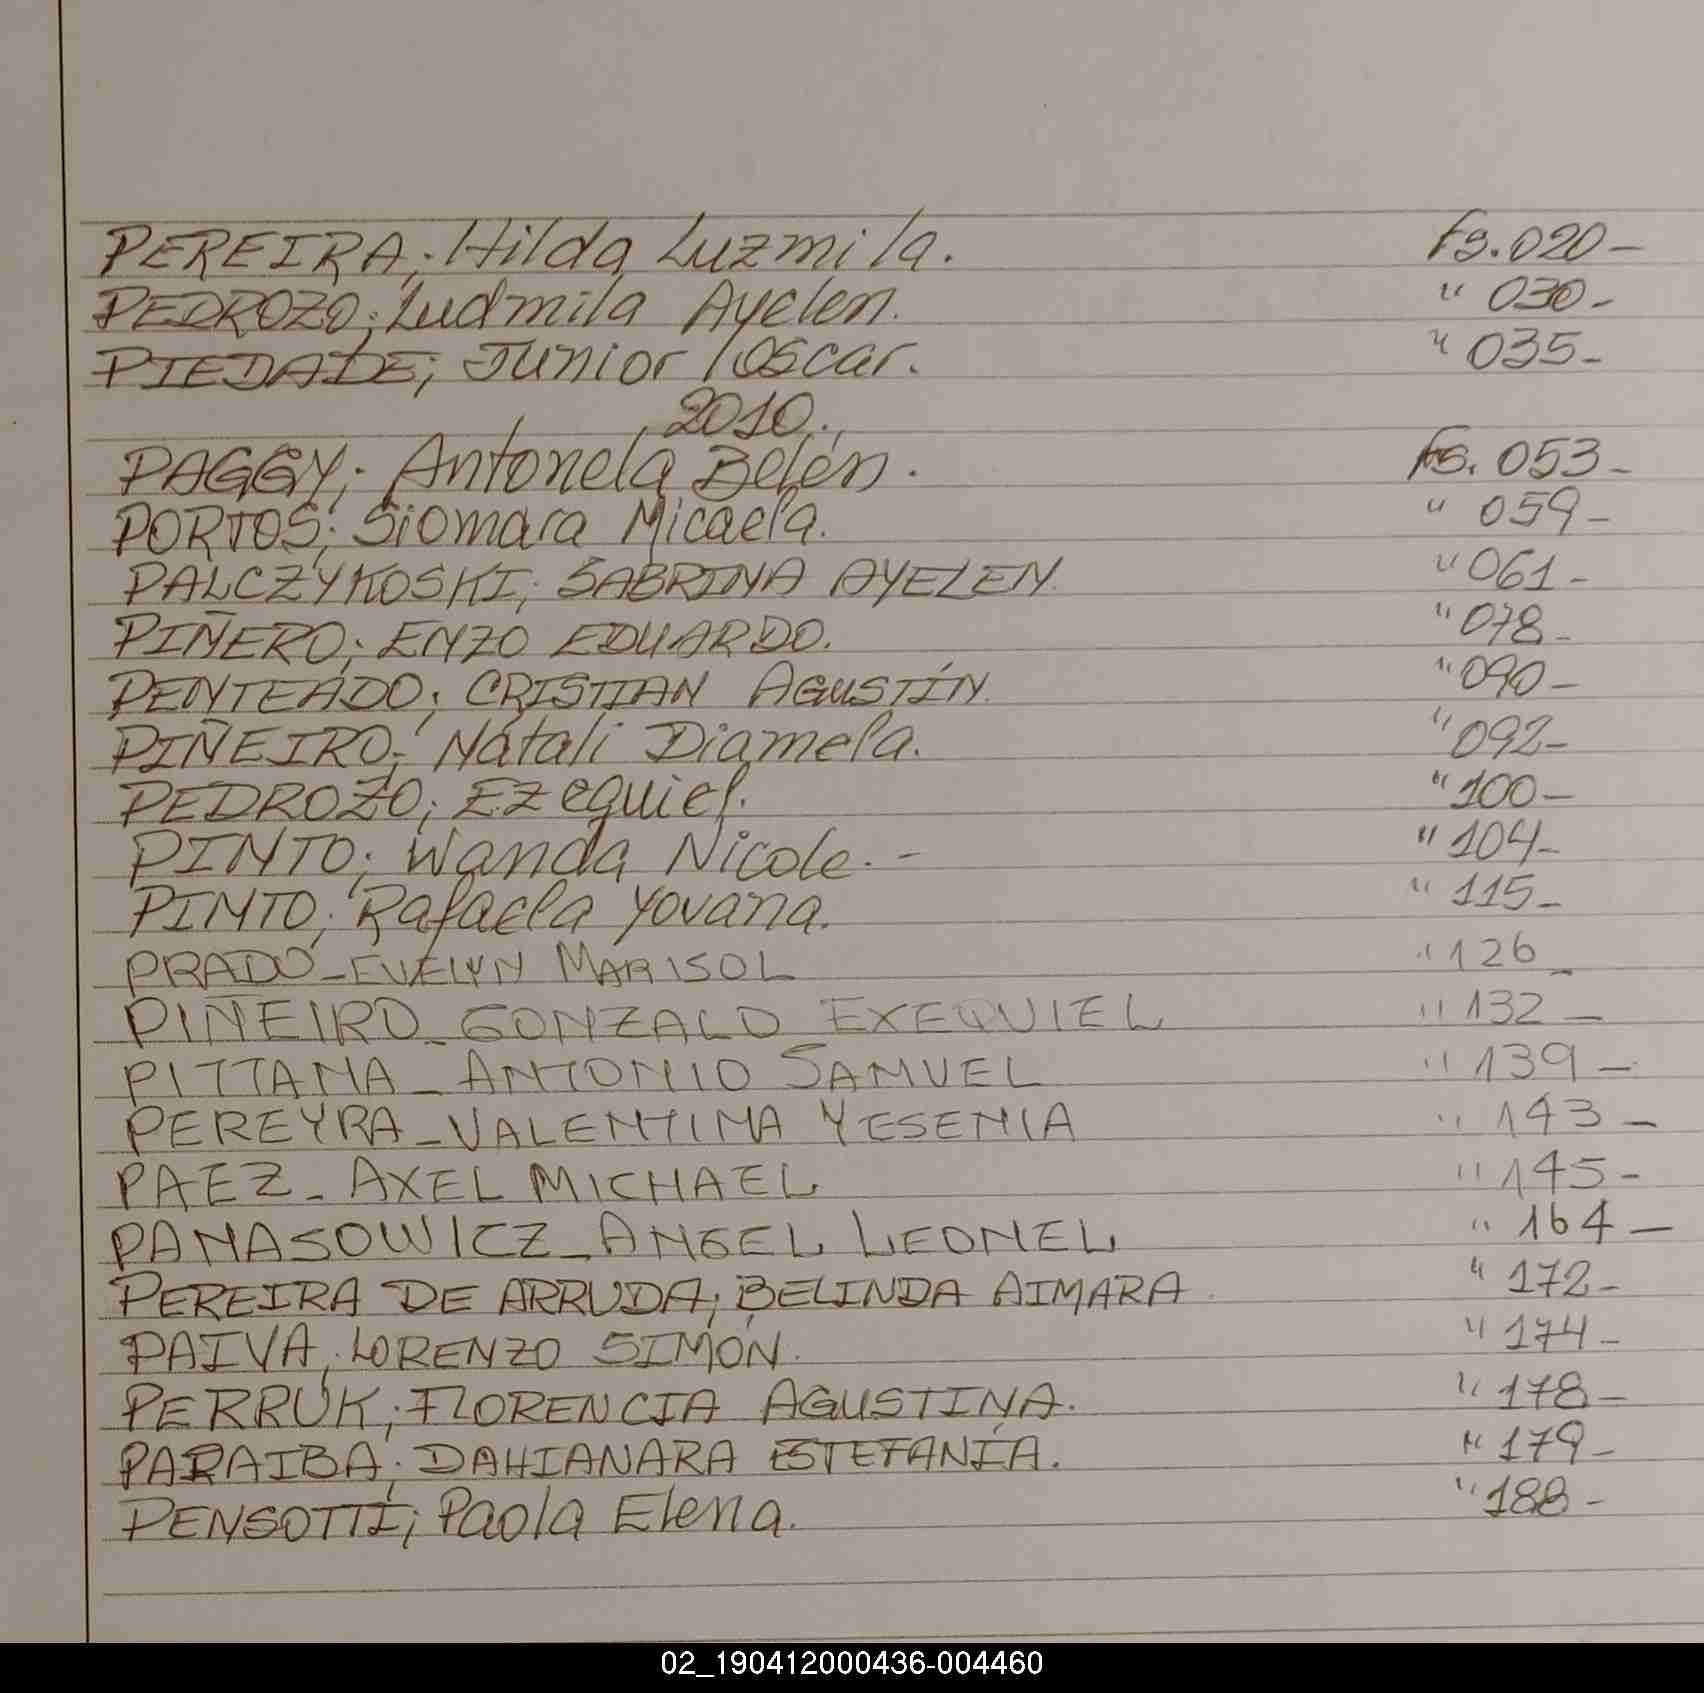 PEREIRA; Hilda Luzmila. Fs. 020-
PEDROZO; Ludmila Ayelen. " 030-
PIEDADE; Junior Oscar. " 035-
2010.
PAGGY; Antonela Belén. Fs. 053-
PORTOS; Siomara Micaela. " 059-
PALCZYKOSKI; SABRINA AYELEN. " 061-
PIÑERO; ENZO EDUARDO. " 078-
PENTEADO; CRISTIAN AGUSTÍN. " 090-
PIÑEIRO; Natali Diamela. " 092-
PEDROZO; Ezequiel. " 100-
PINTO; Wanda Nicole.- " 104-
PINTO; Rafaela Yovana. " 115-
PRADO-EVELYN MARISOL " 126-
PIÑEIRO-GONZALO EXEQUIEL " 132-
PITTANA-ANTONIO SAMUEL " 139-
PEREYRA-VALENTINA YESENIA " 143-
PAEZ-AXEL MICHAEL " 145-
PANASOWICZ-ANGEL LEONEL " 164-
PEREIRA DE ARRUDA; BELINDA AIMARA. " 172-
PAIVA; LORENZO SIMÓN. " 174-
PERRUK; FLORENCIA AGUSTINA. " 178-
PARAIBA; DAHIANARA ESTEFANÍA. " 179-
PENSOTTI; Paola Elena. " 188-
02_190412000436-004460